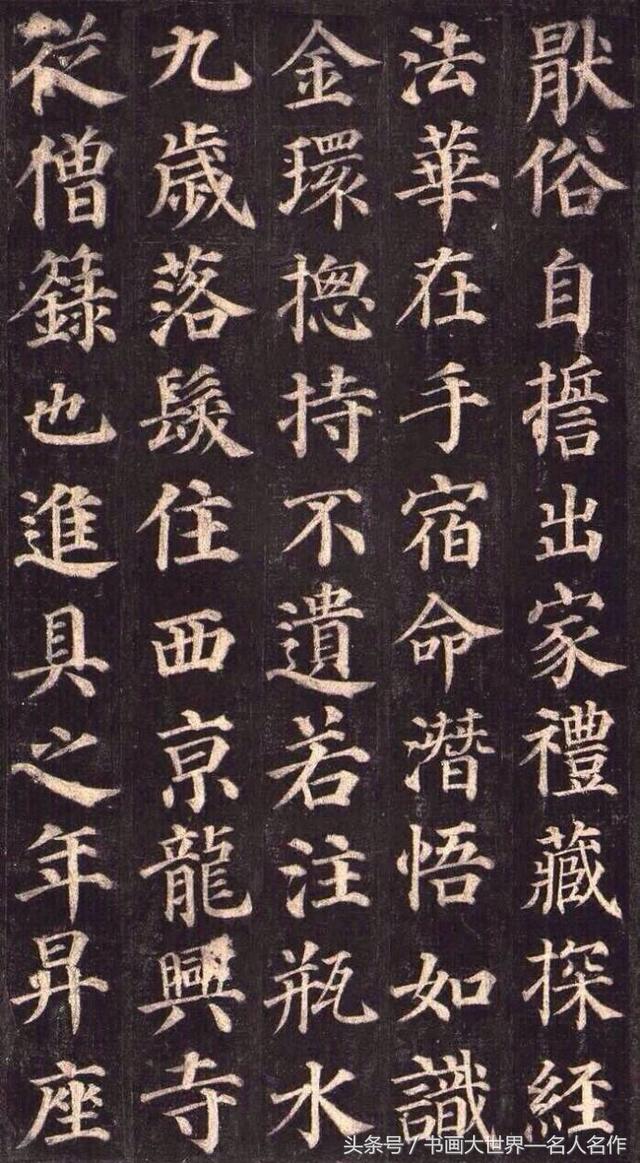 厭俗自誓出家禮藏探經
法華在手宿命潛悟如識
金環揔持不遺若注瓶水
九歲落髮住西京龍興寺
從僧籙也進具之年昇座
头条号／书画大世界—名人名作